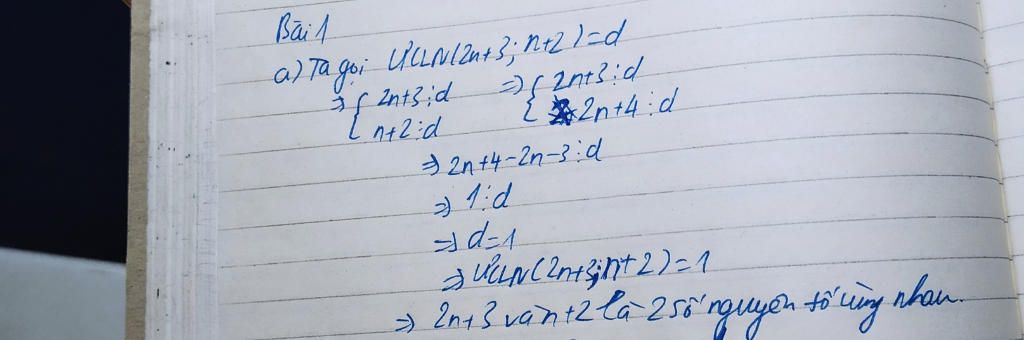 Bài 1
a) Ta gọi ƯCLN(2n+3; n+2)=d
=> { 2n+3⋮d => { 2n+3⋮d
n+2⋮d 2n+4⋮d
=> 2n+4-2n-3⋮d
=> 1⋮d
=> d=1
=> ƯCLN(2n+3;n+2)=1
=> 2n+3 và n+2 là 2 số nguyên tố cùng nhau.